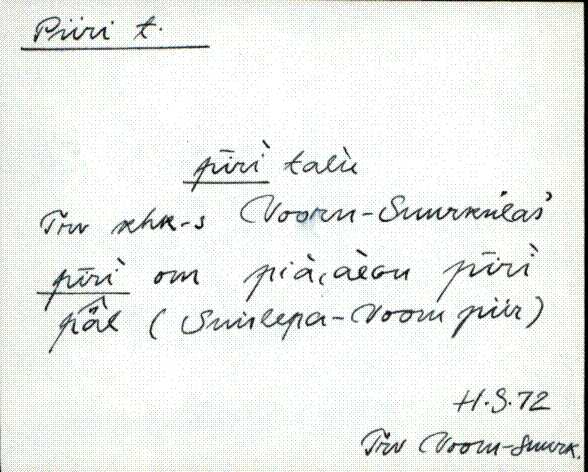 Piiri t.
pīri̇̀ talù
Trv khk-s Voorn-Suurkülas
pīri̇̀ om piri̇̀
päl (Suislepa-Voorn piir)
H.S. 72
Trv Voorn-Suurk.